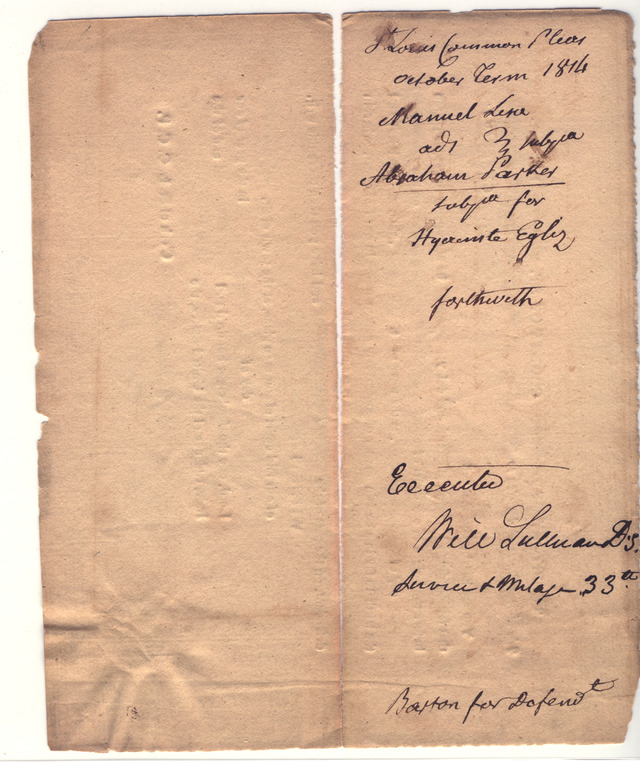 St Louis Common Pleas
October Term 1814
Manuel Lisa
ads } subpa
Abraham Parker
subpa for
Hyacinte Egliz
forthwith
Executed
Will Sullivan D.S.
Service & Milage 33 cts
Barton for Defendt